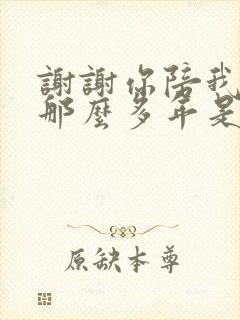 謝謝你陪我
那麼多年是
原缺本尊